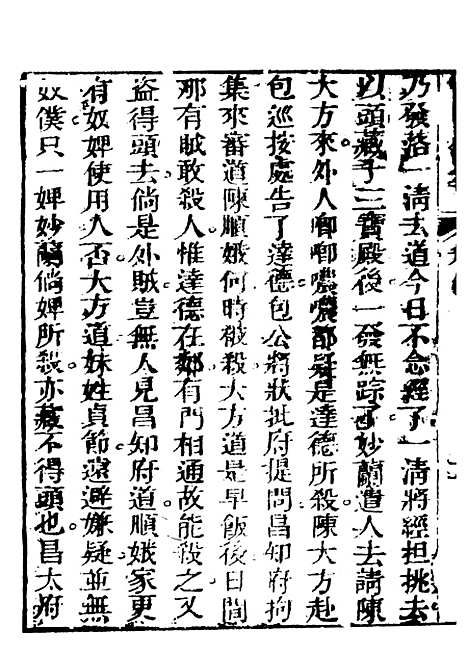 乃發落一清去道今日不念經了一清將經担挑去
以頭藏于三寶殿後一發無踪了妙蘭遣人去請陳
大方來外人唧唧噥噥都疑是達德所殺陳大方赴
包巡按處告了達德包公將狀批府提問昌知府拘
集來審道陳順娥何時被殺大方道是早飯後日間
那有賊敢殺人惟達德在鄰有門相通故能殺之又
盜得頭去倘是外賊豈無人見昌知府道順娥家更
有奴婢使用人否大方道妹姓貞節遠避嫌疑並無
奴僕只一婢妙蘭倘婢所殺亦藏不得頭也昌太府